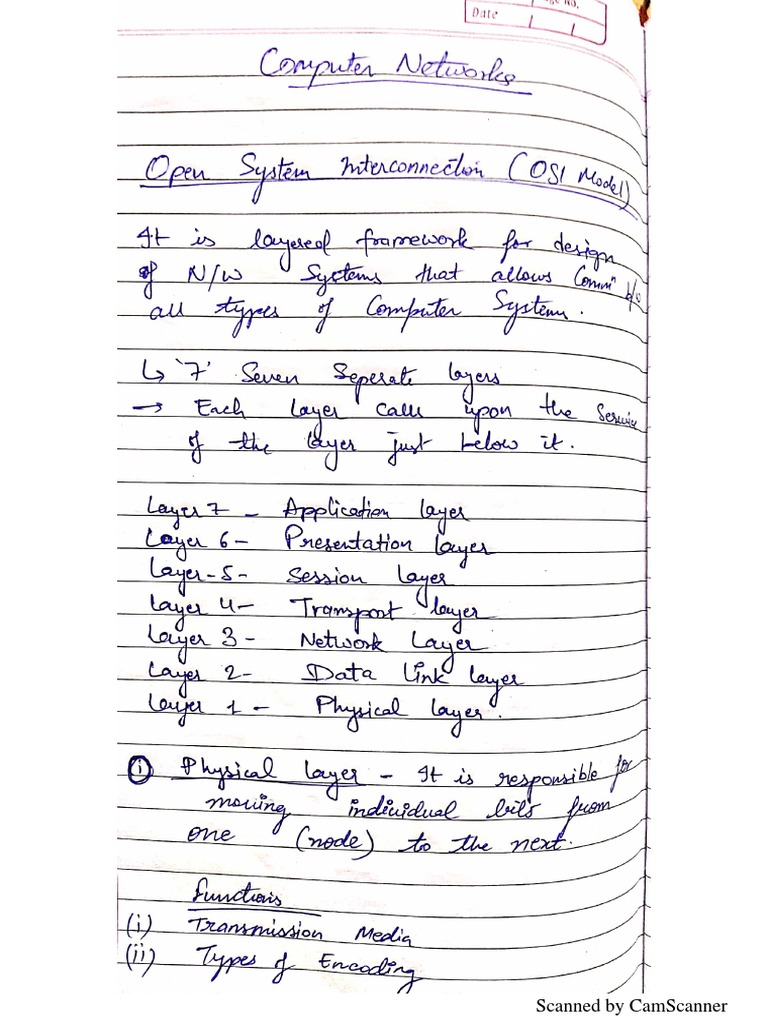 ge No.
Date
Computer Networks
Open System Interconnection (OSI Model)
It is layered framework for design
of N/W Systems that allows Commn b/w
all types of Computer System.
↳ '7' Seven Seperate layers
→ Each layer calls upon the Service
of the layer just below it.
Layer 7 - Application layer
Layer 6 - Presentation layer
Layer-5- Session Layer
Layer 4- Transport layer
Layer 3 - Network Layer
Layer 2- Data Link layer
Layer 1 - Physical layer.
(i) Physical layer - It is responsible for
moving individual bits from
one (node) to the next.
functions
(i) Transmission Media
(ii) Types of Encoding
Scanned by CamScanner